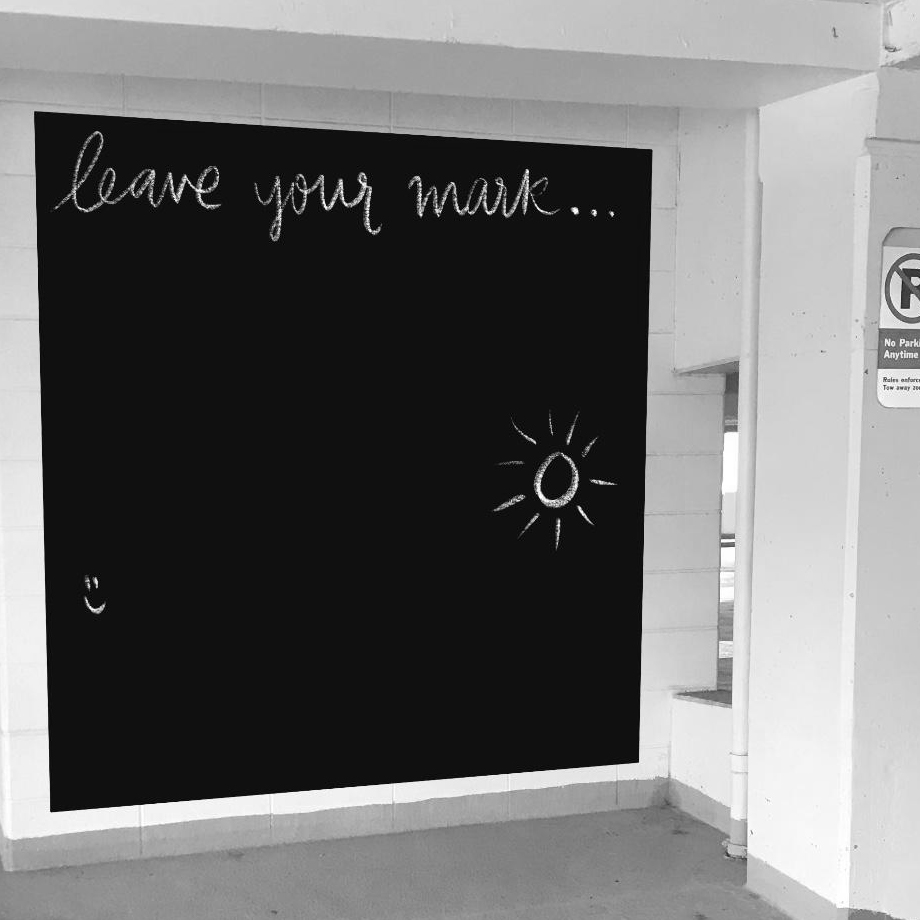 leave your mark...
No Parki
Anytime
Rules enforce
Tow away zo